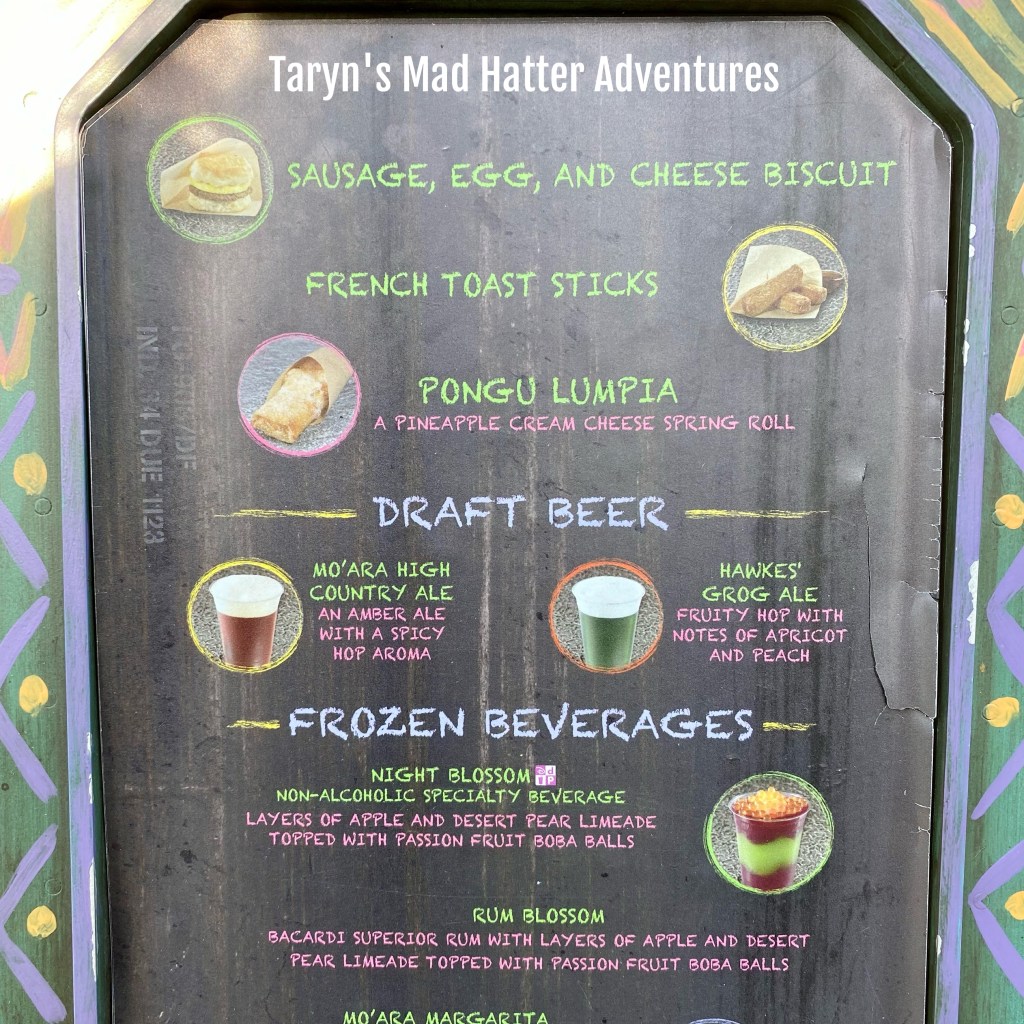 Taryn's Mad Hatter Adventures
SAUSAGE, EGG, AND CHEESE BISCUIT
FRENCH TOAST STICKS
PONGU LUMPIA
A PINEAPPLE CREAM CHEESE SPRING ROLL
DRAFT BEER
MO'ARA HIGH
COUNTRY ALE
AN AMBER ALE
WITH A SPICY
HOP AROMA
HAWKES'
GROG ALE
FRUITY HOP WITH
NOTES OF APRICOT
AND PEACH
FROZEN BEVERAGES
NIGHT BLOSSOM
NON-ALCOHOLIC SPECIALTY BEVERAGE
LAYERS OF APPLE AND DESERT PEAR LIMEADE
TOPPED WITH PASSION FRUIT BOBA BALLS
RUM BLOSSOM
BACARDI SUPERIOR RUM WITH LAYERS OF APPLE AND DESERT
PEAR LIMEADE TOPPED WITH PASSION FRUIT BOBA BALLS
MO'ARA MARGARITA